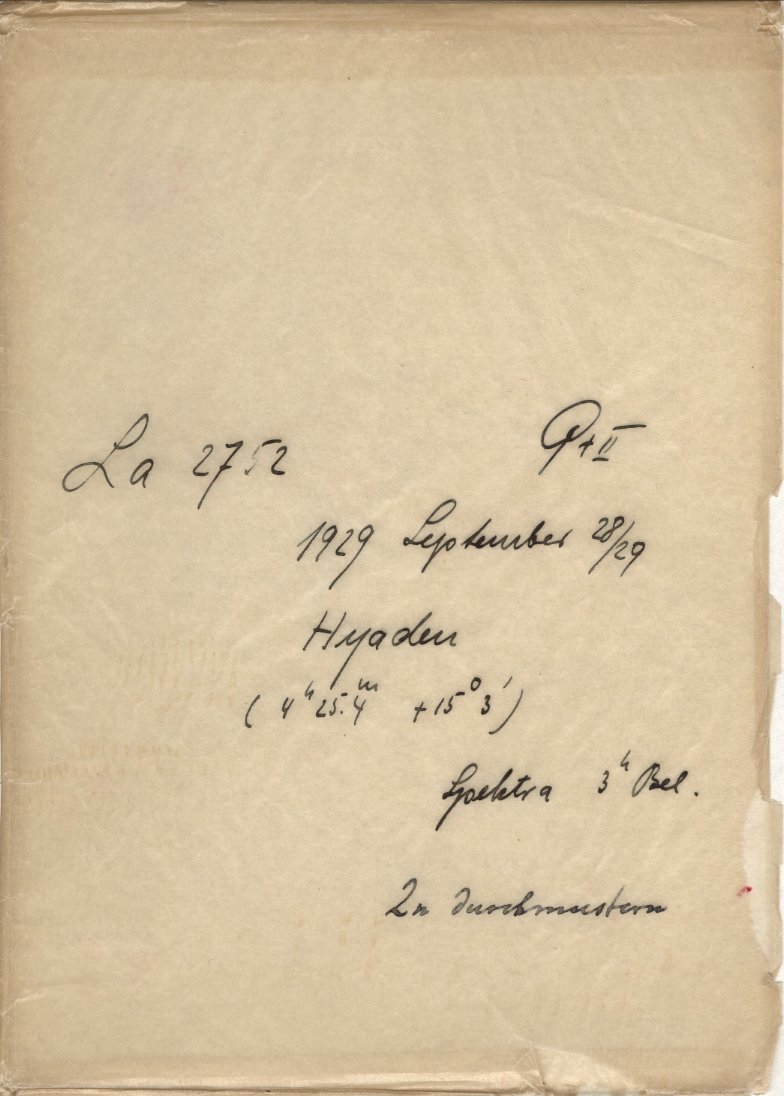 La 2752 P+II
1929 September 28/29
Hyaden
( 4ʰ 25.4ᵐ +15° 3′ )
Spektra 3ʰ Bel.
Zu durchmustern